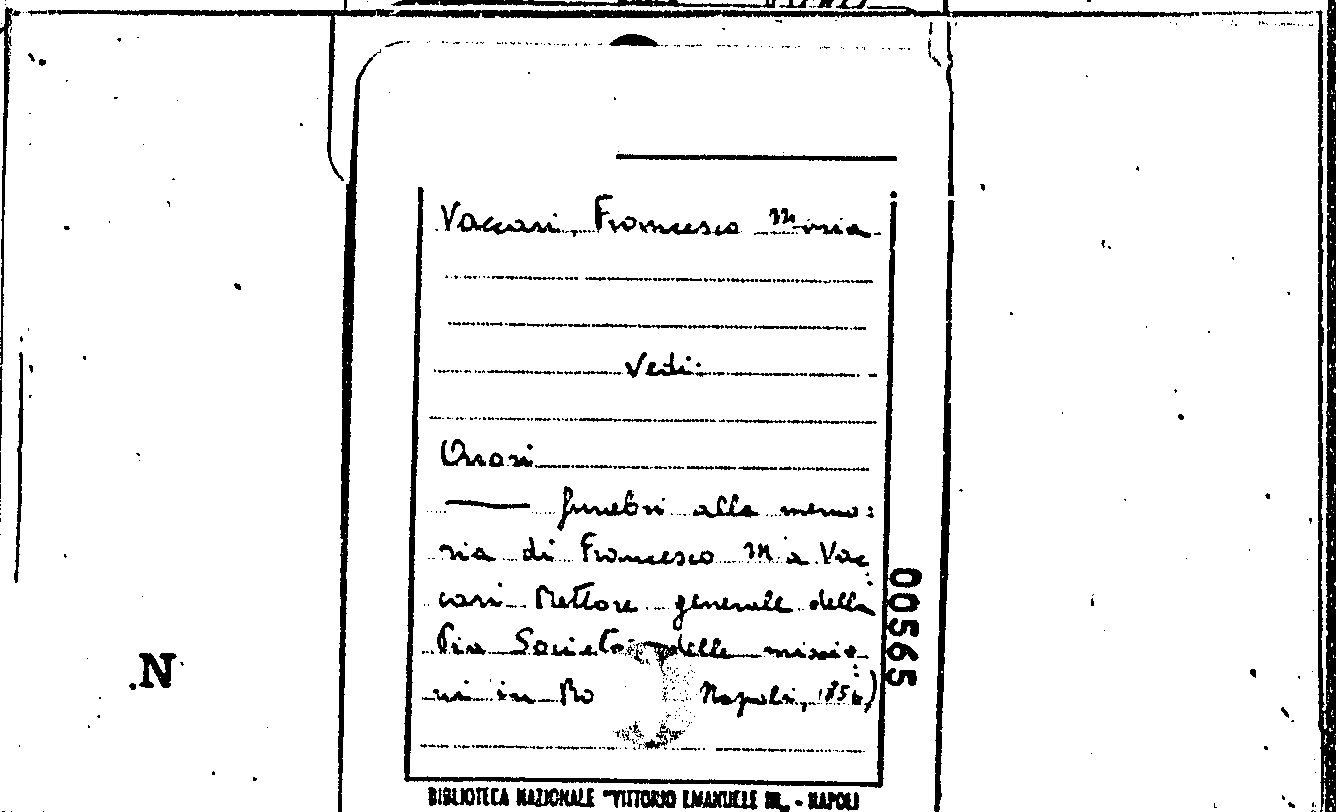 Vaccari, Francesco Maria
Vedi:
Onori
funebri alla memo:
ria di Francesco M.a Vac
cari Rettore generale della
Pia Società delle missio:
ni in Ro Napoli, 185
00565
.N
BIBLIOTECA NAZIONALE "VITTORIO EMANUELE III" - NAPOLI